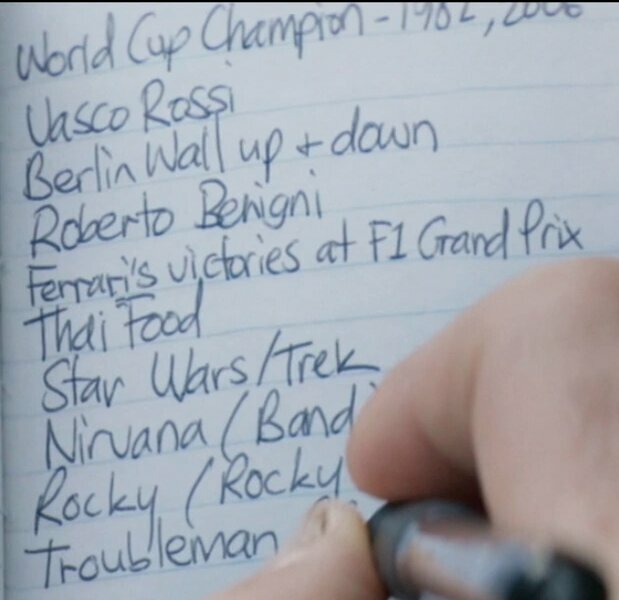 World Cup Champion - 1982, 2006
Vasco Rossi
Berlin Wall up + down
Roberto Benigni
Ferrari's victories at F1 Grand Prix
Thai Food
Star Wars/Trek
Nirvana (Band
Rocky (Rocky
Troubleman